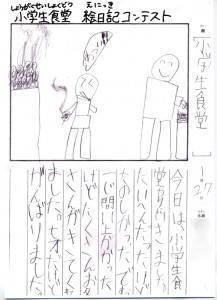 しょうがくせいしょくどう えにっき
小学生食堂 絵日記コンテスト
「小学生食堂」
月27日
今日は、小学生食
堂に行きました。
たいへんだったけど
たのしかったです。
一じ間い上かかった
けどたくさんお客
さんがきてくれ
ました。七才だけど
がんばりました。